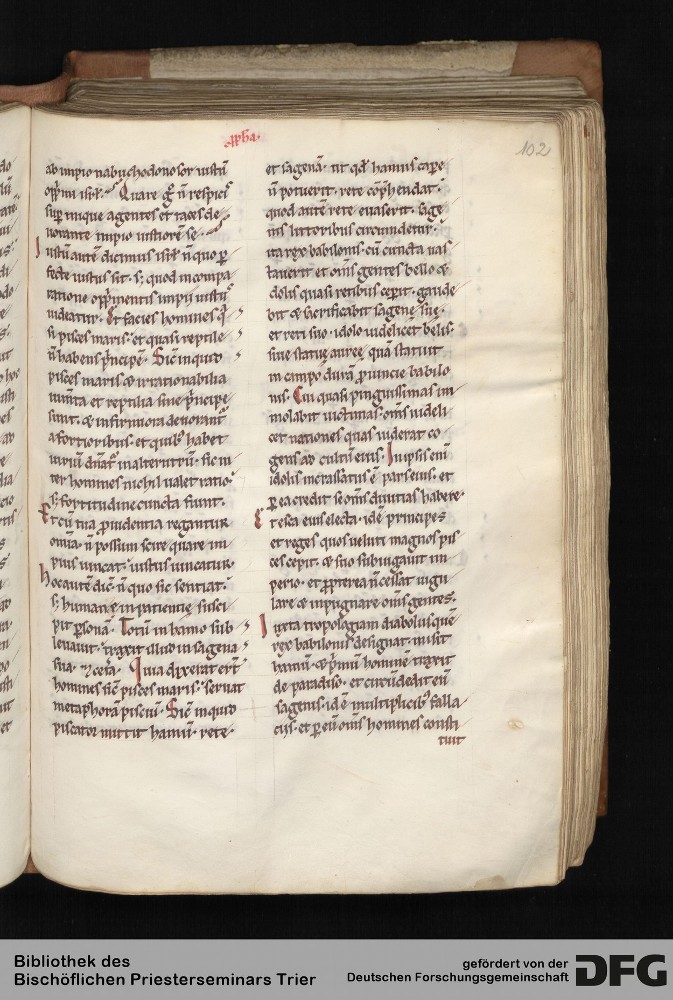 102
ab impio nabuchodonosor iustū
opp̄mi isrł. Quare g̊ n̄ respicis
sup̱ inique agentes et taces de
uorante impio iustiorē se.
Iustū autē dicimus isrł n̄ quo p̱
fecte iustus sit. s; quod in compa
ratione opp̄mentis impii iustus
uideatur. Et facies homines q̄
si pisces maris. et quasi reptile
n̄ habens p̄ncipē. Sic̄ inquid
pisces maris & irrationabilia
iumta et reptilia sine p̄ncipe
sunt. & infirmiora deuorant᷑
a fortiorib; et qui plus habet
uiriū dn̄at᷑ in alterutrū. sic in
ter homines nichil ualet ratio
s; fortitudine cuncta fiunt.
Et cū tua prouidentia regantur
om̄ia. n̄ possum scire quare im
pius uincat. iustus uincatur.
Hoc autē dic̄. n̄ quo sic sentiat.
s; humanę inpatientię susci
pit p̱sonā. Totū in hamo sub
leuauit. traxit illud in sagena
sua. & cet̄a. Quia dixerat ert̄
homines sic̄ pisces maris. seruat
metaphorā pisciū. Sic̄ inquid
piscator mittit hamū. rete.
et sagenā. ut qđ hamus cape
n̄ potuerit. rete cōp̄hendat.
quod autē rete euaserit. sage
nis littoribus circumdetur.
ita rex babilonis. cū cuncta uas
tauerit et om̄s gentes bello &
dolis quasi retibus cepit. gaude
bit & sacrificabit sagenę suę.
et reti suo. idolo uidelicet belis.
siue statuę aureę quā statuit
in campo durā prouincie babilo
nis. Cui quasi pinguissimas im
molabit uictimas. om̄s uideli
cet nationes quas uiderat co
gens ad cultū eius. In ipsis eni
idolis incrassatus ē pars eius. et
p̱ ea credit se om̄s diuitias habere.
Et esca eius electa. id ē principes
et reges quos ueluti magnos pis
ces cepit. & suo subiugauit im
perio. et propterea n̄ cessat iugu
lare & inpugnare om̄s gentes.
Iuxta tropologiam diabolus quē
rex babilonis designat. misit
hamū. & p̄mū hominē traxit
de paradiso. et circūdedit eū
sagenis. id ē multiplicib; falla
ciis. et p̱ eū om̄s homines consti
tuit
Bibliothek des
Bischöflichen Priesterseminars Trier
gefördert von der
Deutschen Forschungsgemeinschaft
DFG